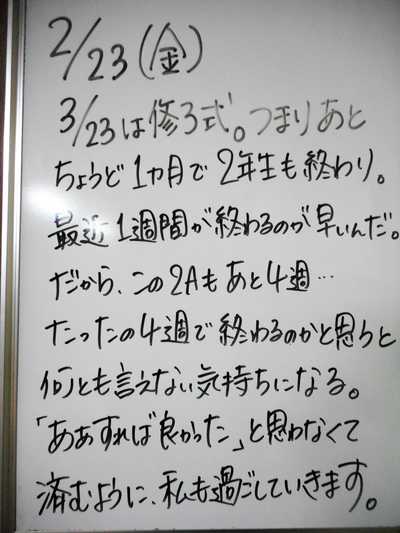 2/23(金)
3/23は修了式。つまりあと
ちょうど1カ月で2年生も終わり。
最近1週間が終わるのが早いんだ。
だから、この2Aもあと4週…
たったの4週で終わるのかと思うと
何とも言えない気持ちになる。
「ああすれば良かった」と思わなくて
済むように、私も過ごしていきます。